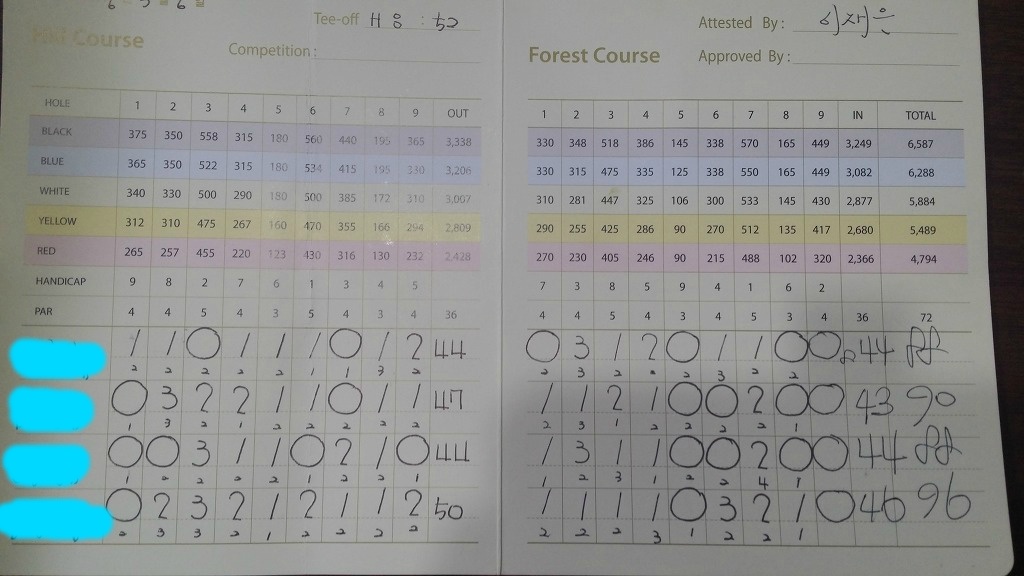 6 - 5 = 6
Tee-off : 52
Hill Course
Competition :
HOLE 1 2 3 4 5 6 7 8 9 OUT
BLACK 375 350 558 315 180 560 440 195 365 3,338
BLUE 365 350 522 315 180 534 415 195 330 3,206
WHITE 340 330 500 290 180 500 385 172 310 3,007
YELLOW 312 310 475 267 160 470 355 166 294 2,809
RED 265 257 455 220 123 430 316 130 232 2,428
HANDICAP 9 8 2 7 6 1 3 4 5
PAR 4 4 5 4 3 5 4 3 4 36
1 1 0 1 1 1 0 1 2 44
2 2 2 2 2 1 1 3 2
0 3 2 2 1 1 0 1 1 47
1 3 2 1 2 2 2 2 2
0 0 3 1 1 0 2 1 0 44
1 2 2 2 2 1 2 2 1
0 2 3 2 1 2 1 1 2 50
2 3 3 2 1 2 2 2 2
Attested By :
Forest Course Approved By :
1 2 3 4 5 6 7 8 9 IN TOTAL
330 348 518 386 145 338 570 165 449 3,249 6,587
330 315 475 335 125 338 550 165 449 3,082 6,288
310 281 447 325 106 300 533 145 430 2,877 5,884
290 255 425 286 90 270 512 135 417 2,680 5,489
270 230 405 246 90 215 488 102 320 2,366 4,794
7 3 8 5 9 4 1 6 2
4 4 5 4 3 4 5 3 4 36 72
0 3 1 2 0 1 1 0 0 44 88
2 3 2 2 2 3 2 2
1 1 2 1 0 0 2 0 0 43 90
2 3 1 2 2 2 2 1
1 3 1 1 0 0 2 0 0 44 88
1 2 3 1 2 2 4 1
1 1 1 1 0 3 2 1 0 46 96
2 2 2 3 1 2 2 1